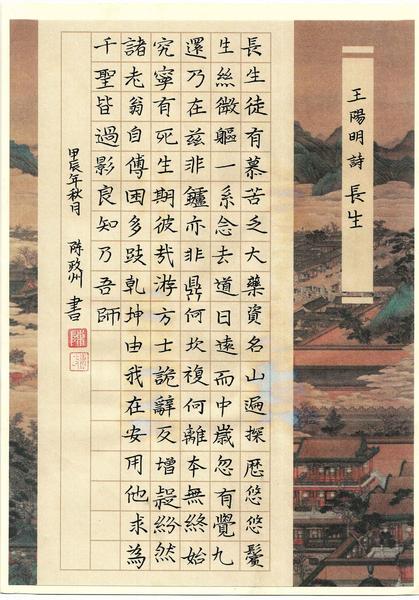 王陽明詩 長生
長生徒有慕苦乏大藥資名山遍探歷悠悠鬢
生絲微軀一系念去道日遠而中歲忽有覺九
還乃在茲非鑪亦非鼎何坎複何離本無終始
究寧有死生期彼哉游方士詭辭反增疑紛然
諸老翁自傳困多歧乾坤由我在安用他求為
千聖皆過影良知乃吾師
甲辰年秋月 陳政州 書